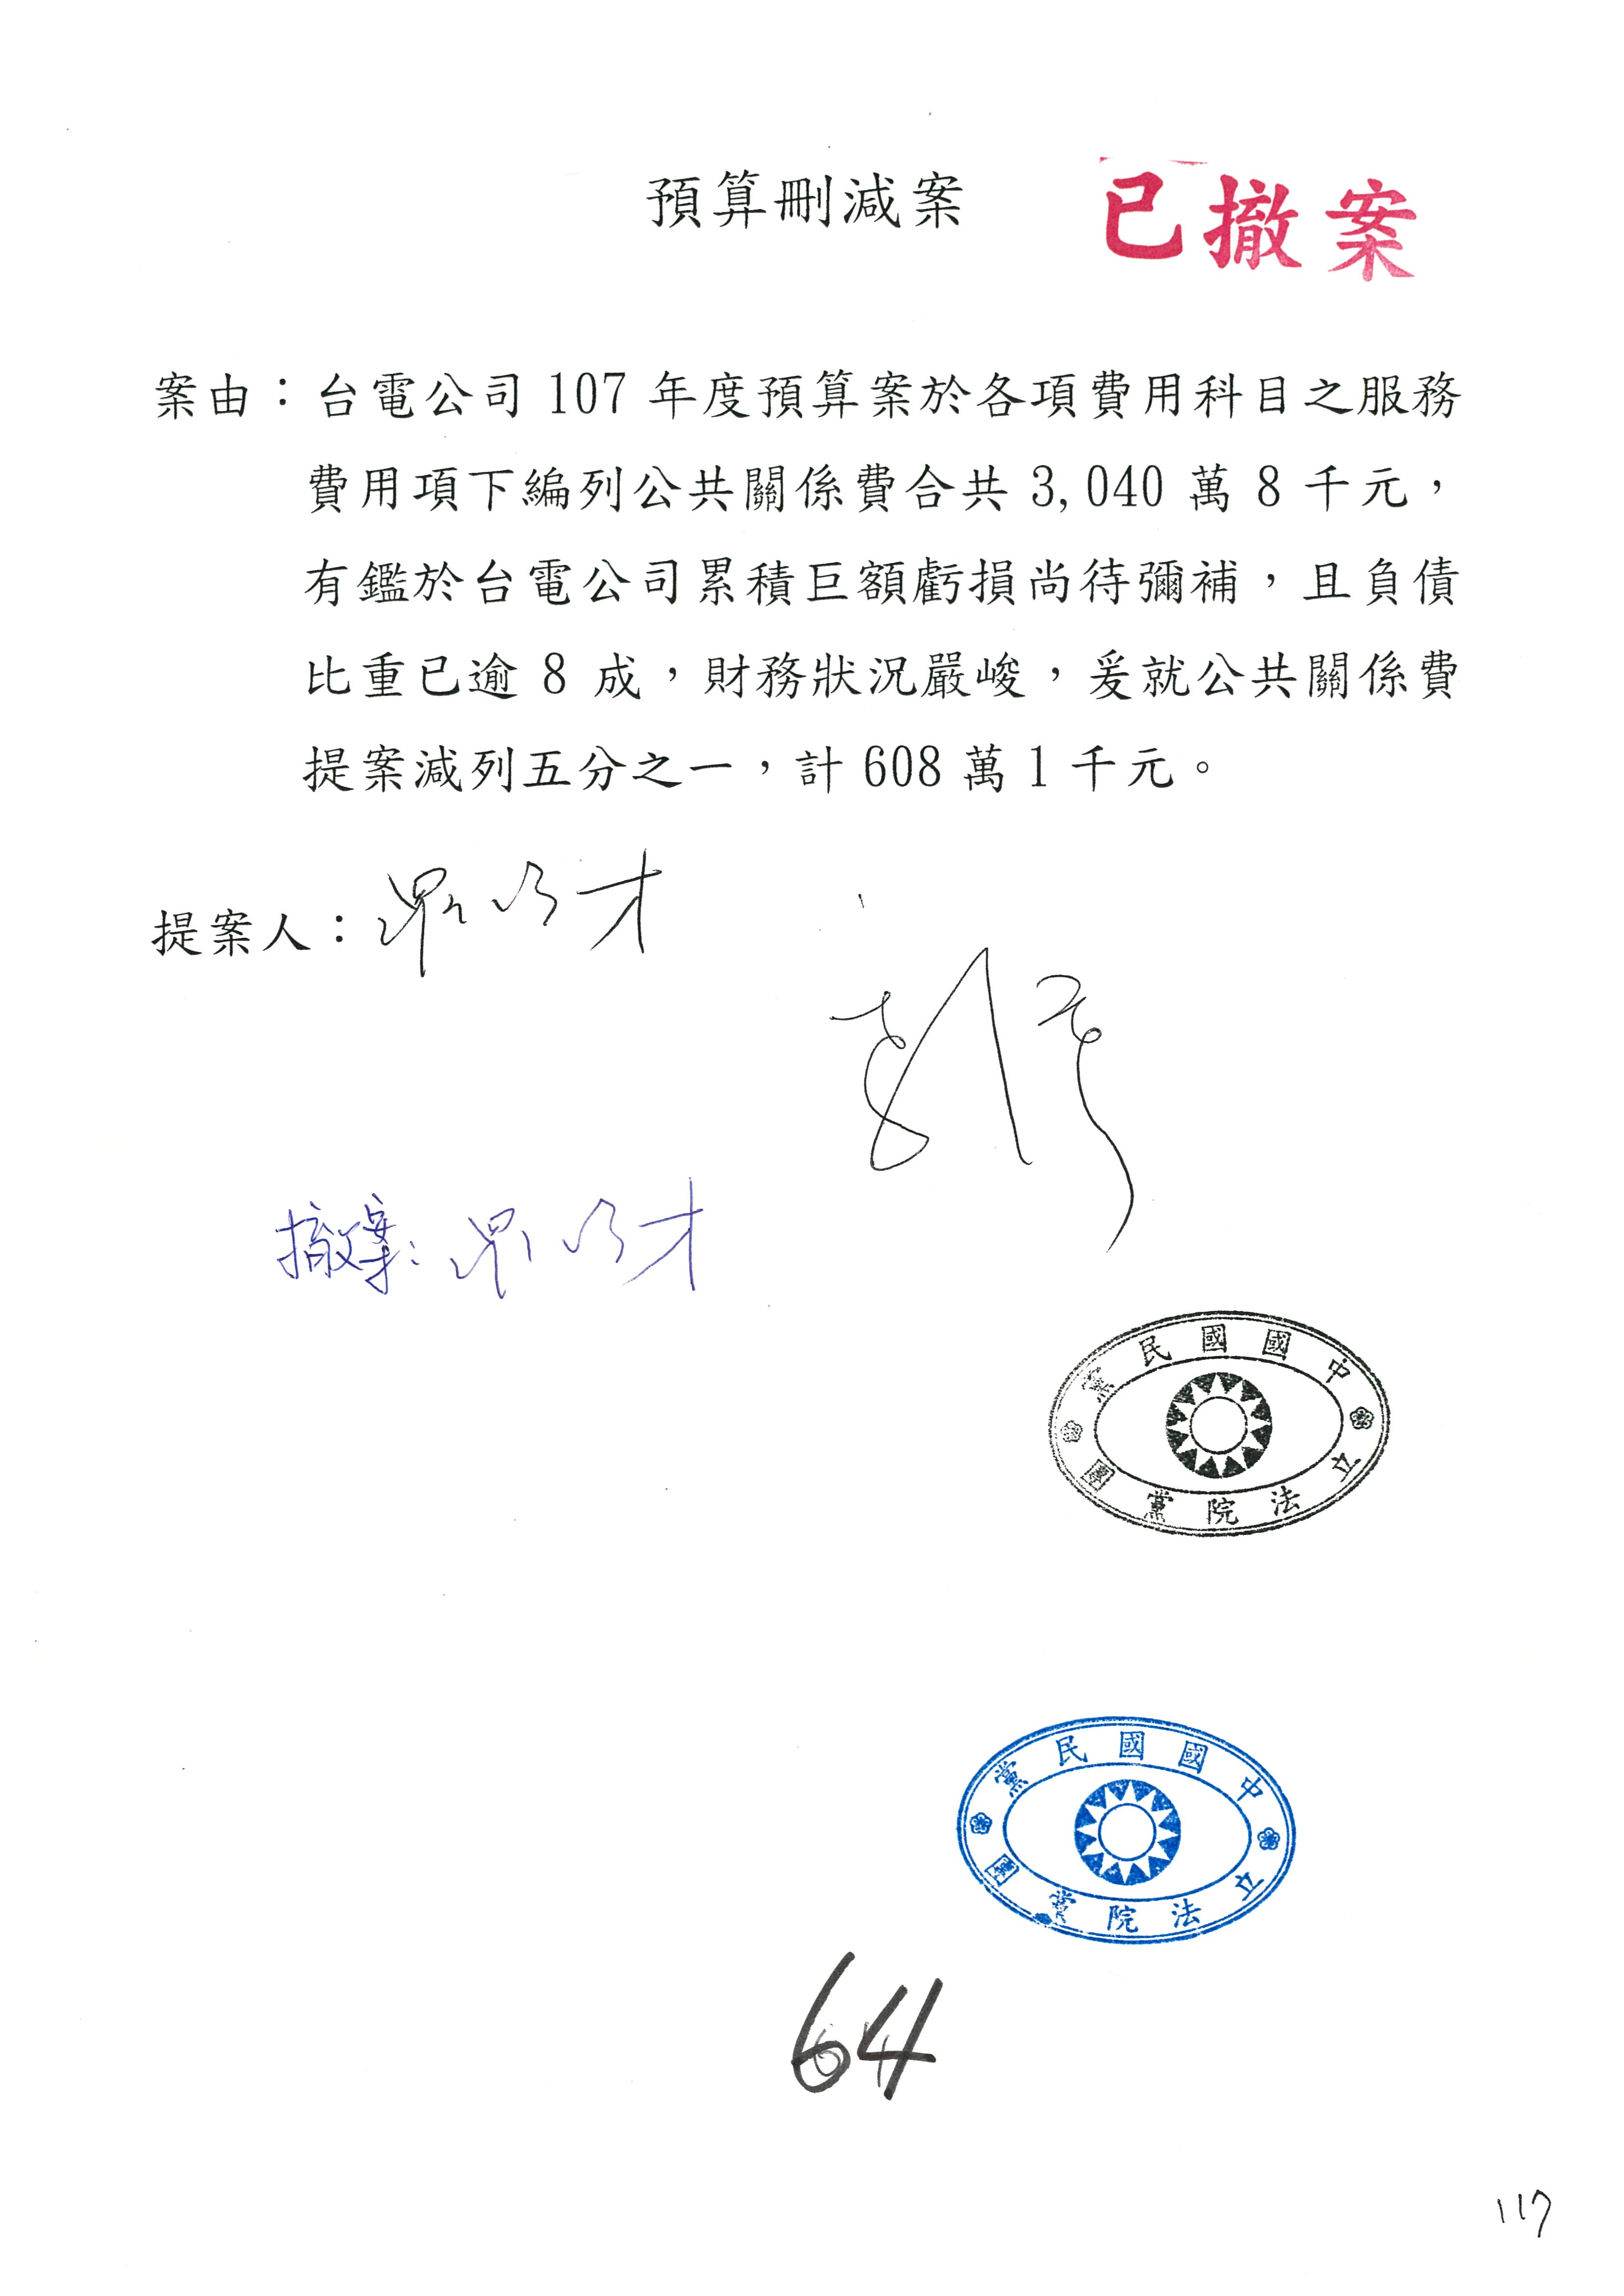 預算刪減案
已撤案
案由：台電公司 107 年度預算案於各項費用科目之服務
費用項下編列公共關係費合共 3,040 萬 8 千元，
有鑑於台電公司累積巨額虧損尚待彌補，且負債
比重已逾 8 成，財務狀況嚴峻，爰就公共關係費
提案減列五分之一，計 608 萬 1 千元。
提案人：
撤案：
中國國民黨
立法院黨團
中國國民黨
立法院黨團
64
117